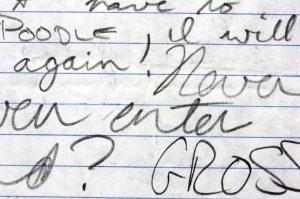 have to
POODLE, I will
again! Never
ven enter
? GROSS